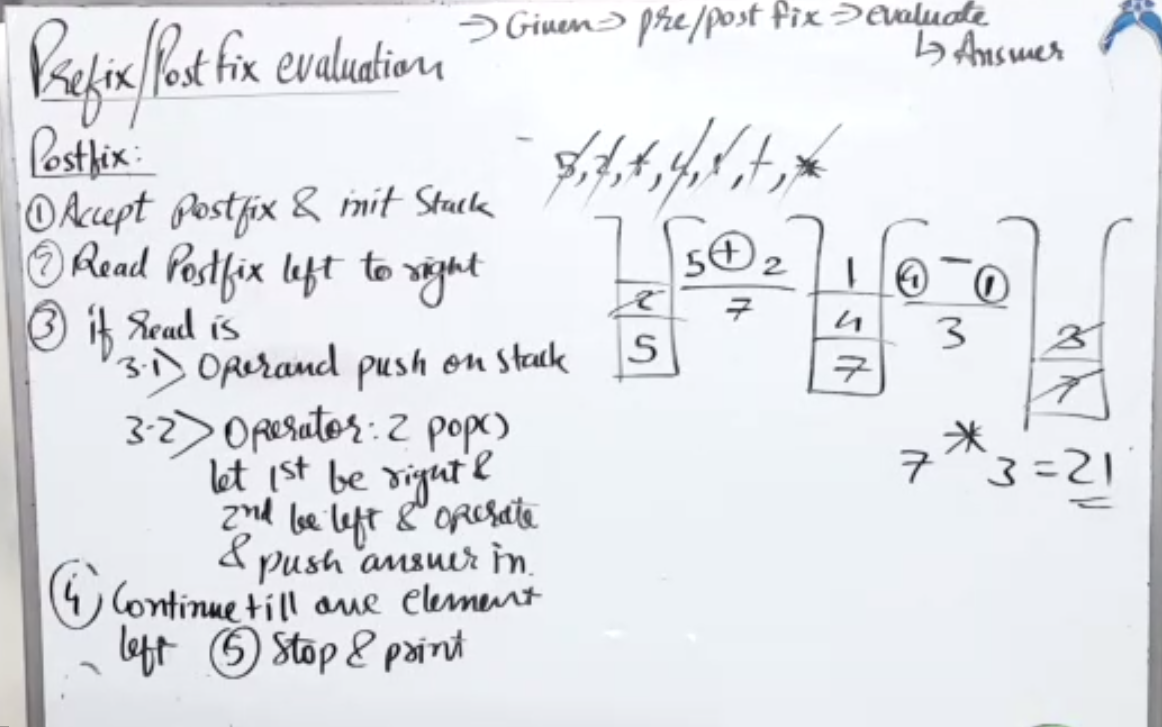 Prefix/Postfix evaluation
→ Given → pre/post fix → evaluate
↳ Answer
Postfix:
① Accept Postfix & init Stack
② Read Postfix left to right
③ if Read is
3.1> Operand push on stack
3.2> Operator: 2 pop()
let 1st be right &
2nd be left & operate
& push answer in.
④ Continue till one element
left ⑤ Stop & print
5, 2, +, 4, 1, -, *
2
5
5 + 2
7
1
4
7
4 - 1
3
3
7
7 * 3 = 21